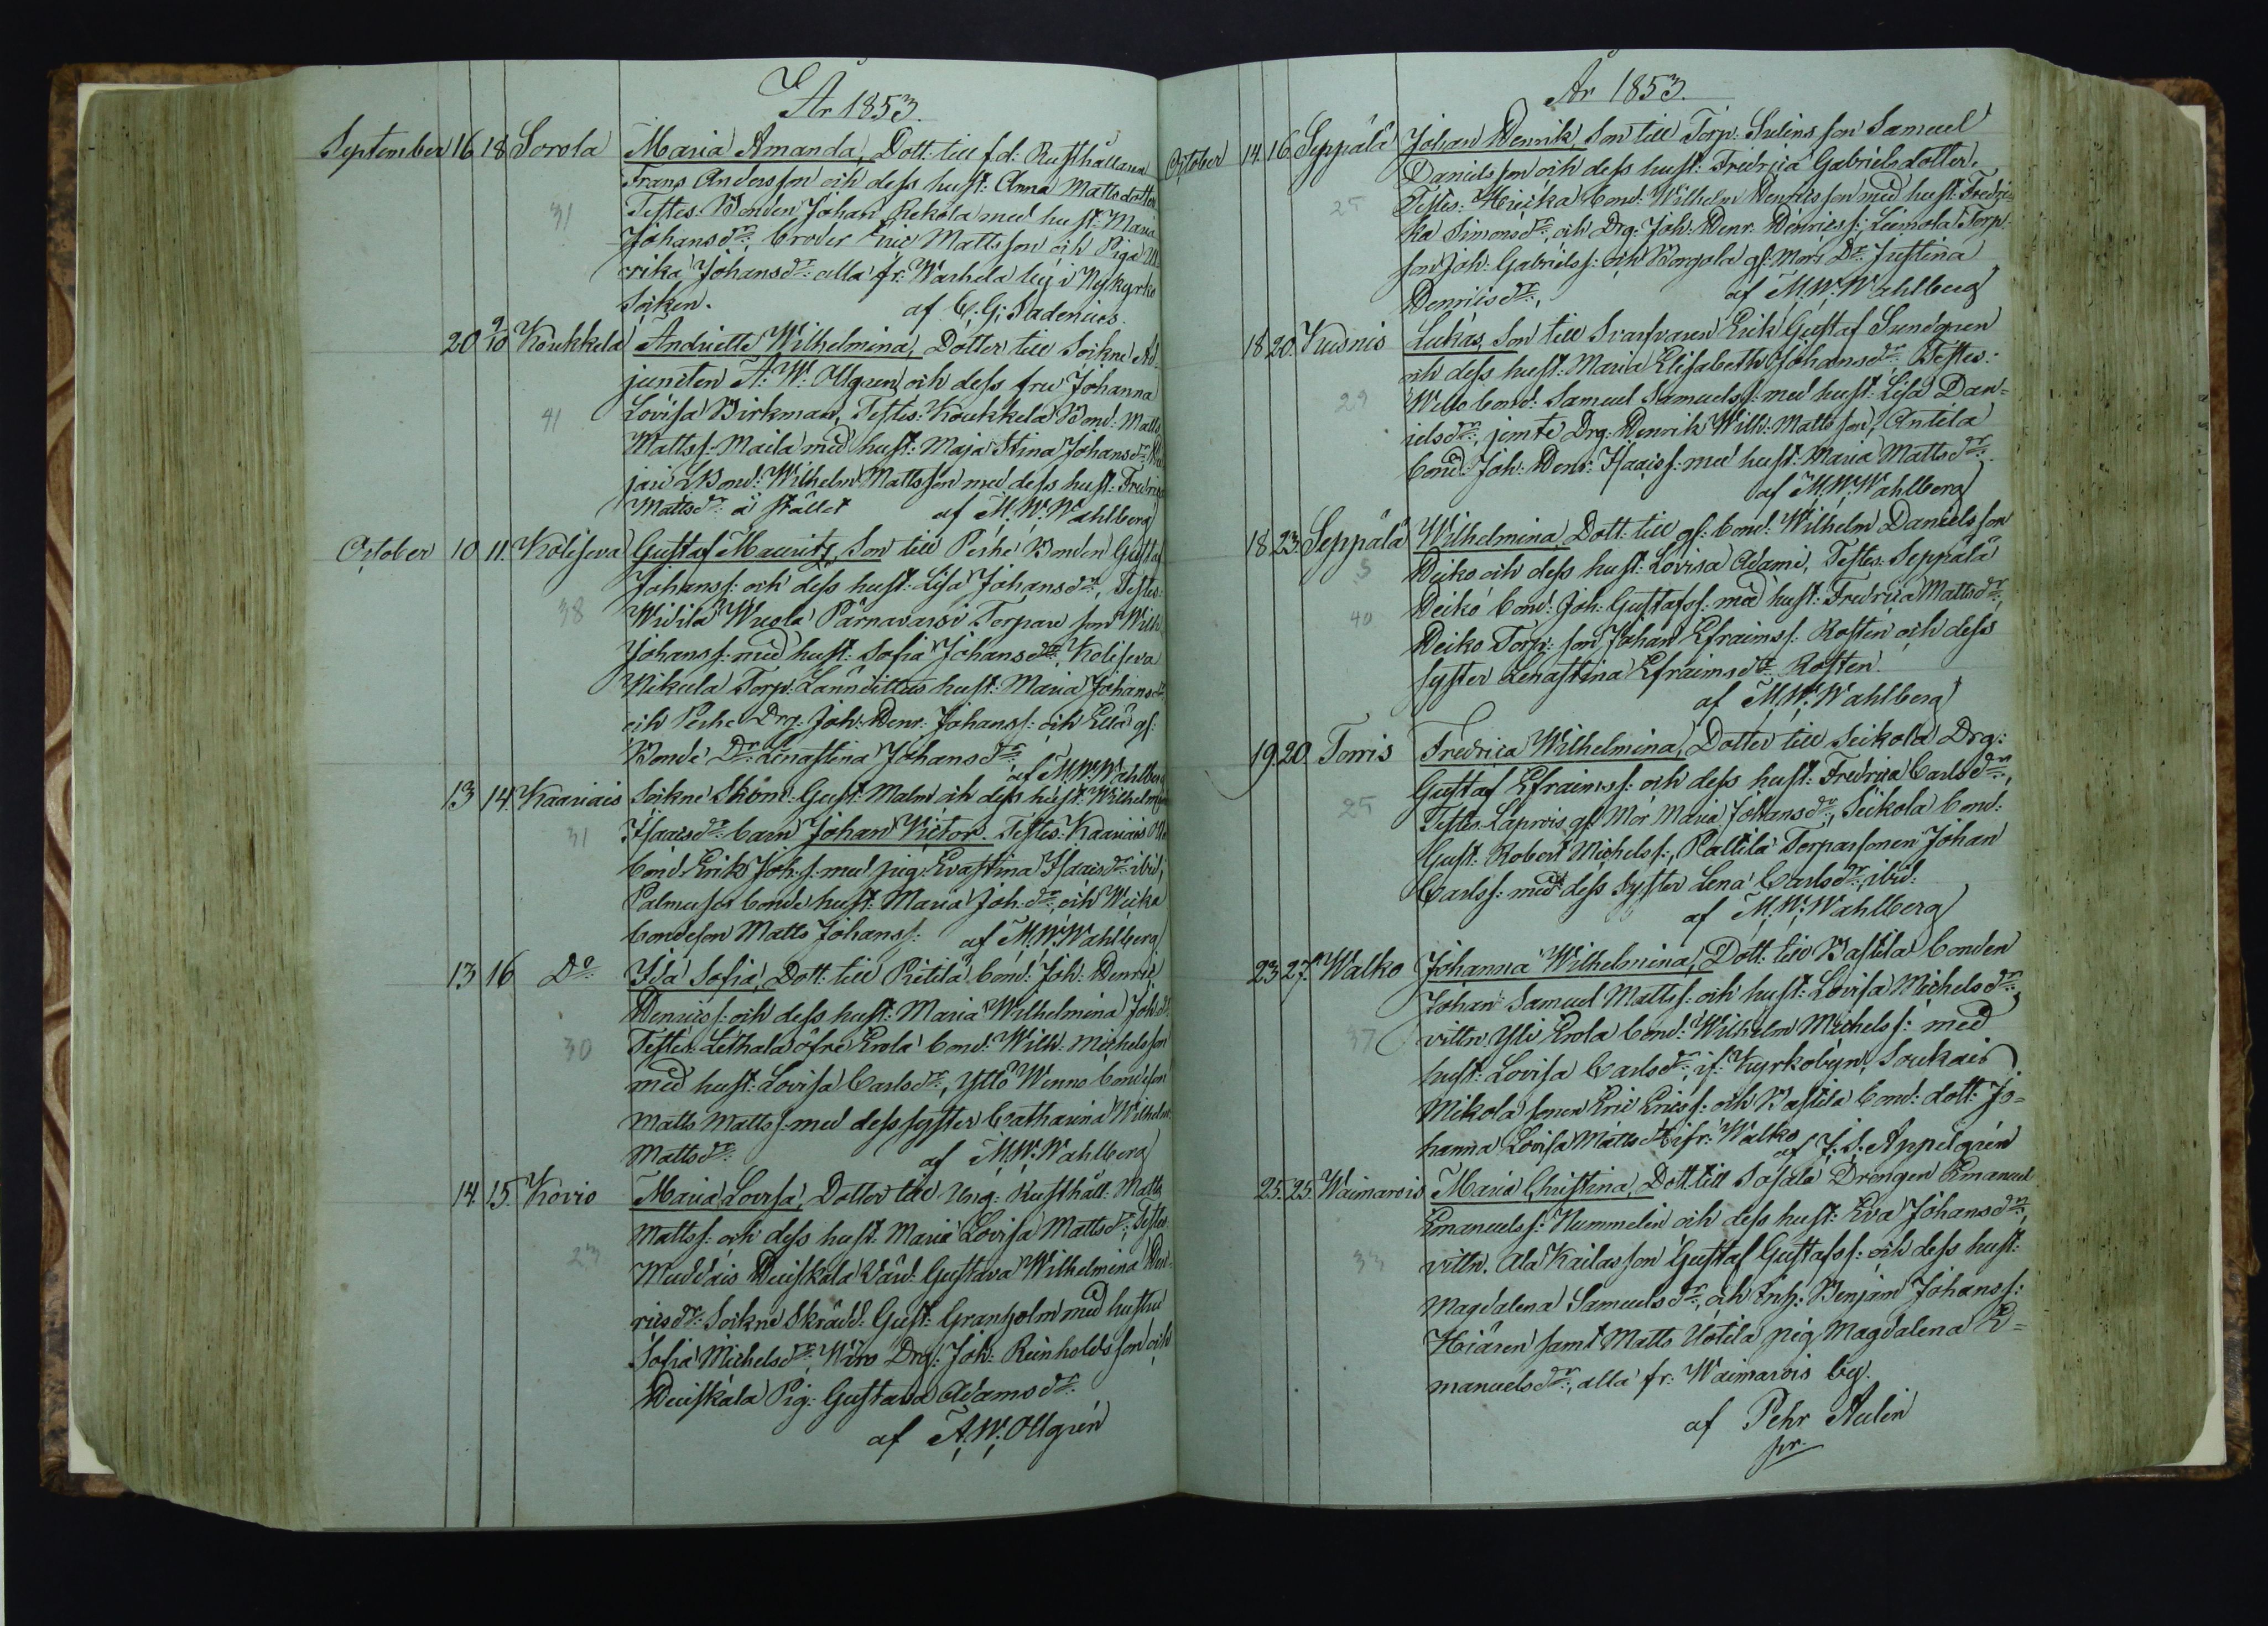 År 1853.
September 16 18 Sorola Maria Amanda, Dott: till f.d. Rusthållaren
Frans Andersson och dess hust: Anna Mattsdotter
31 Testes: Bonden Johan Rekola med hust: Maria
Johansdr:, broder Eric Mattsson och Piga Ul
rika Johansdr: alla fr: Warhela by i Nykyrko
Socken. af C. G. Sadenius.
20 9/10 Koukkela Andriette Wilhelmina, Dotter till Sockne Ad
juncten A: W: Ollgren och dess fru Johanna
41 Lovisa Birkman, Testes: Koukkela Bond: Matts
Mattss: Maila med hust: Maja Stina Johansdr:
jari Bond: Wilhelm Mattsson med dess hust: Fredrica
Mattsdr: å stället af M. W. Wahlberg
October 10 11. Koliseva Gustaf Mauritz, Son till Perhe Bonden Gustaf
Johanss: och dess hust: Lisa Johansdr, Testes:
38 Widila Wuola Pärnavarsi Torpare son Wilh:
Johanss: med hust: Sofia Johansdr: Koliseva
Nikula Torp: hust: Maria Johansdr
och Perhe Drg: Joh: Henr: Johanss: och Ella gf:
Bonde Dr: Lenastina Johansdr:
af M. W. Wahlberg
13 14. Kaariais Sockne Skom: Gust: Malm och dess hust: Wilhelmina
31 Isaacsdr: barn Johan Victor. Testes: Kaariais
bond: Erik Joh:s: med pig: Evastina Isaacsdr: ibid;
Palmusos bonde hust: Maria Joh:dr:, och Wicka
bondeson Matts Johanss: af M. W. Wahlberg
13 16 Do: Ida Sofia, Dott: till Pietilä bond: Joh: Henric
Henricss: och dess hust: Maria Wilhelmina Joh:dr.
30 Testes: Lethala öfre Erola bond: Wilh: Michelsson
med hust: Lovisa Carlsdr:, Yttö Winno bondeson
Matts Mattss: med dess syster Catharina Wilhelm:
Mattsdr: af M. W. Wahlberg
14. 15. Kovio Maria Lovisa, Dotter till Ung: Rusthåll: Matts
Mattss: och dess hust: Maria Lovisa Mattsdr: Testes:
23 Muddais Heiskala Värd: Gustava Wilhelmina Hen-
ricsdr: Sockne Skrädd: Gust: Granholm med hustru
Sofia Michelsdr:, Wiro Drg: Joh: Reinholdsson och
Heiskala Pig: Gustava Adamsdr:
af A. W. Ollgrén
År 1853.
October 14. 16. Seppälä Johan Henrik, Son till Torp: Sulins son Samuel
Danielsson och dess hust: Fredrica Gabrielsdotter.
25 Testes: Hiuska bond: Wilhelm Henricsson med hust: Fredri-
ka Simonsdr:, och Drg: Joh: Henr: Henricss:, Leemola Torp:
son Joh: Gabrielss: och Borjola gf: Mors Dr: Justina
Henricsdr:, af M. W. Wahlberg
18. 20. Kusnis Lukas, Son till Svarfvaren Erik Gustaf Sundgren
och dess hust: Maria Elisabeth Johansdr: Testes:
29 bond: Samuel Samuelss: med hust: Lisa Dan-
ielsdr:, jemte Drg: Henrik Wilh: Mattsson, Antila
bond: Joh: Henr: Isaacs: med hust: Maria Mattsdr:
af M. W. Wahlberg
18. 23. Seppälä Wilhelmina, Dott: till gf: bond: Wilhelm Danielsson
5 Heiko och dess hust: Lovisa Adami, Testes: Seppälä
40 Heiko bond: Joh: Gustafss: med hust: Fredrica Mattsdr:,
Heiko Torp: son Johan Efraimss: Rosten och dess
syster Lenastina Efraimsdr: Rosten.
af M. W. Wahlberg
19. 20. Torris Fredrica Wilhelmina, Dotter till Seikola Drg:
Gustaf Efraimss: och dess hust: Fredrica Carlsdr:,
25 Testes: Laprois gf: Mor Maria Johansdr:, Seikola bond:
Gust: Robert Michelss:, Palttila Torparsonen Johan
Carlss: med dess Syster Lena Carlsdr: ibid:
af M. W. Wahlberg
23. 27. Walko Johanna Wilhelmina, Dott: till Bastila bonden
Johan Samuel Mattss: och hust: Lovisa Michelsdr:,
37 vittn: Yli Erola bond: Wilhelm Michelss: med
hust: Lovisa Carlsdr:, if: Kyrkobyn; Soukais
Mikola sonen Eric Ericss: och Bastila bond: dott: Jo-
hanna Lovisa Matts fr: Walko af J. S. Appelgrén
25. 25. Waimarois Maria Christina, Dott. till Sasala Drengen Emanuel
Emanuelss: Hummelin och dess hust: Eva Johansdr:,
33 vittn: Ala Kailas son Gustaf Gustafss: och dess hust:
Magdalena Samuelsdr:, och Inh: Benjam Johanss:
samt Matts Uotila pig: Magdalena E-
manuelsdr:, alla fr: Waimarois by.
af Pehr Aulin
pr.